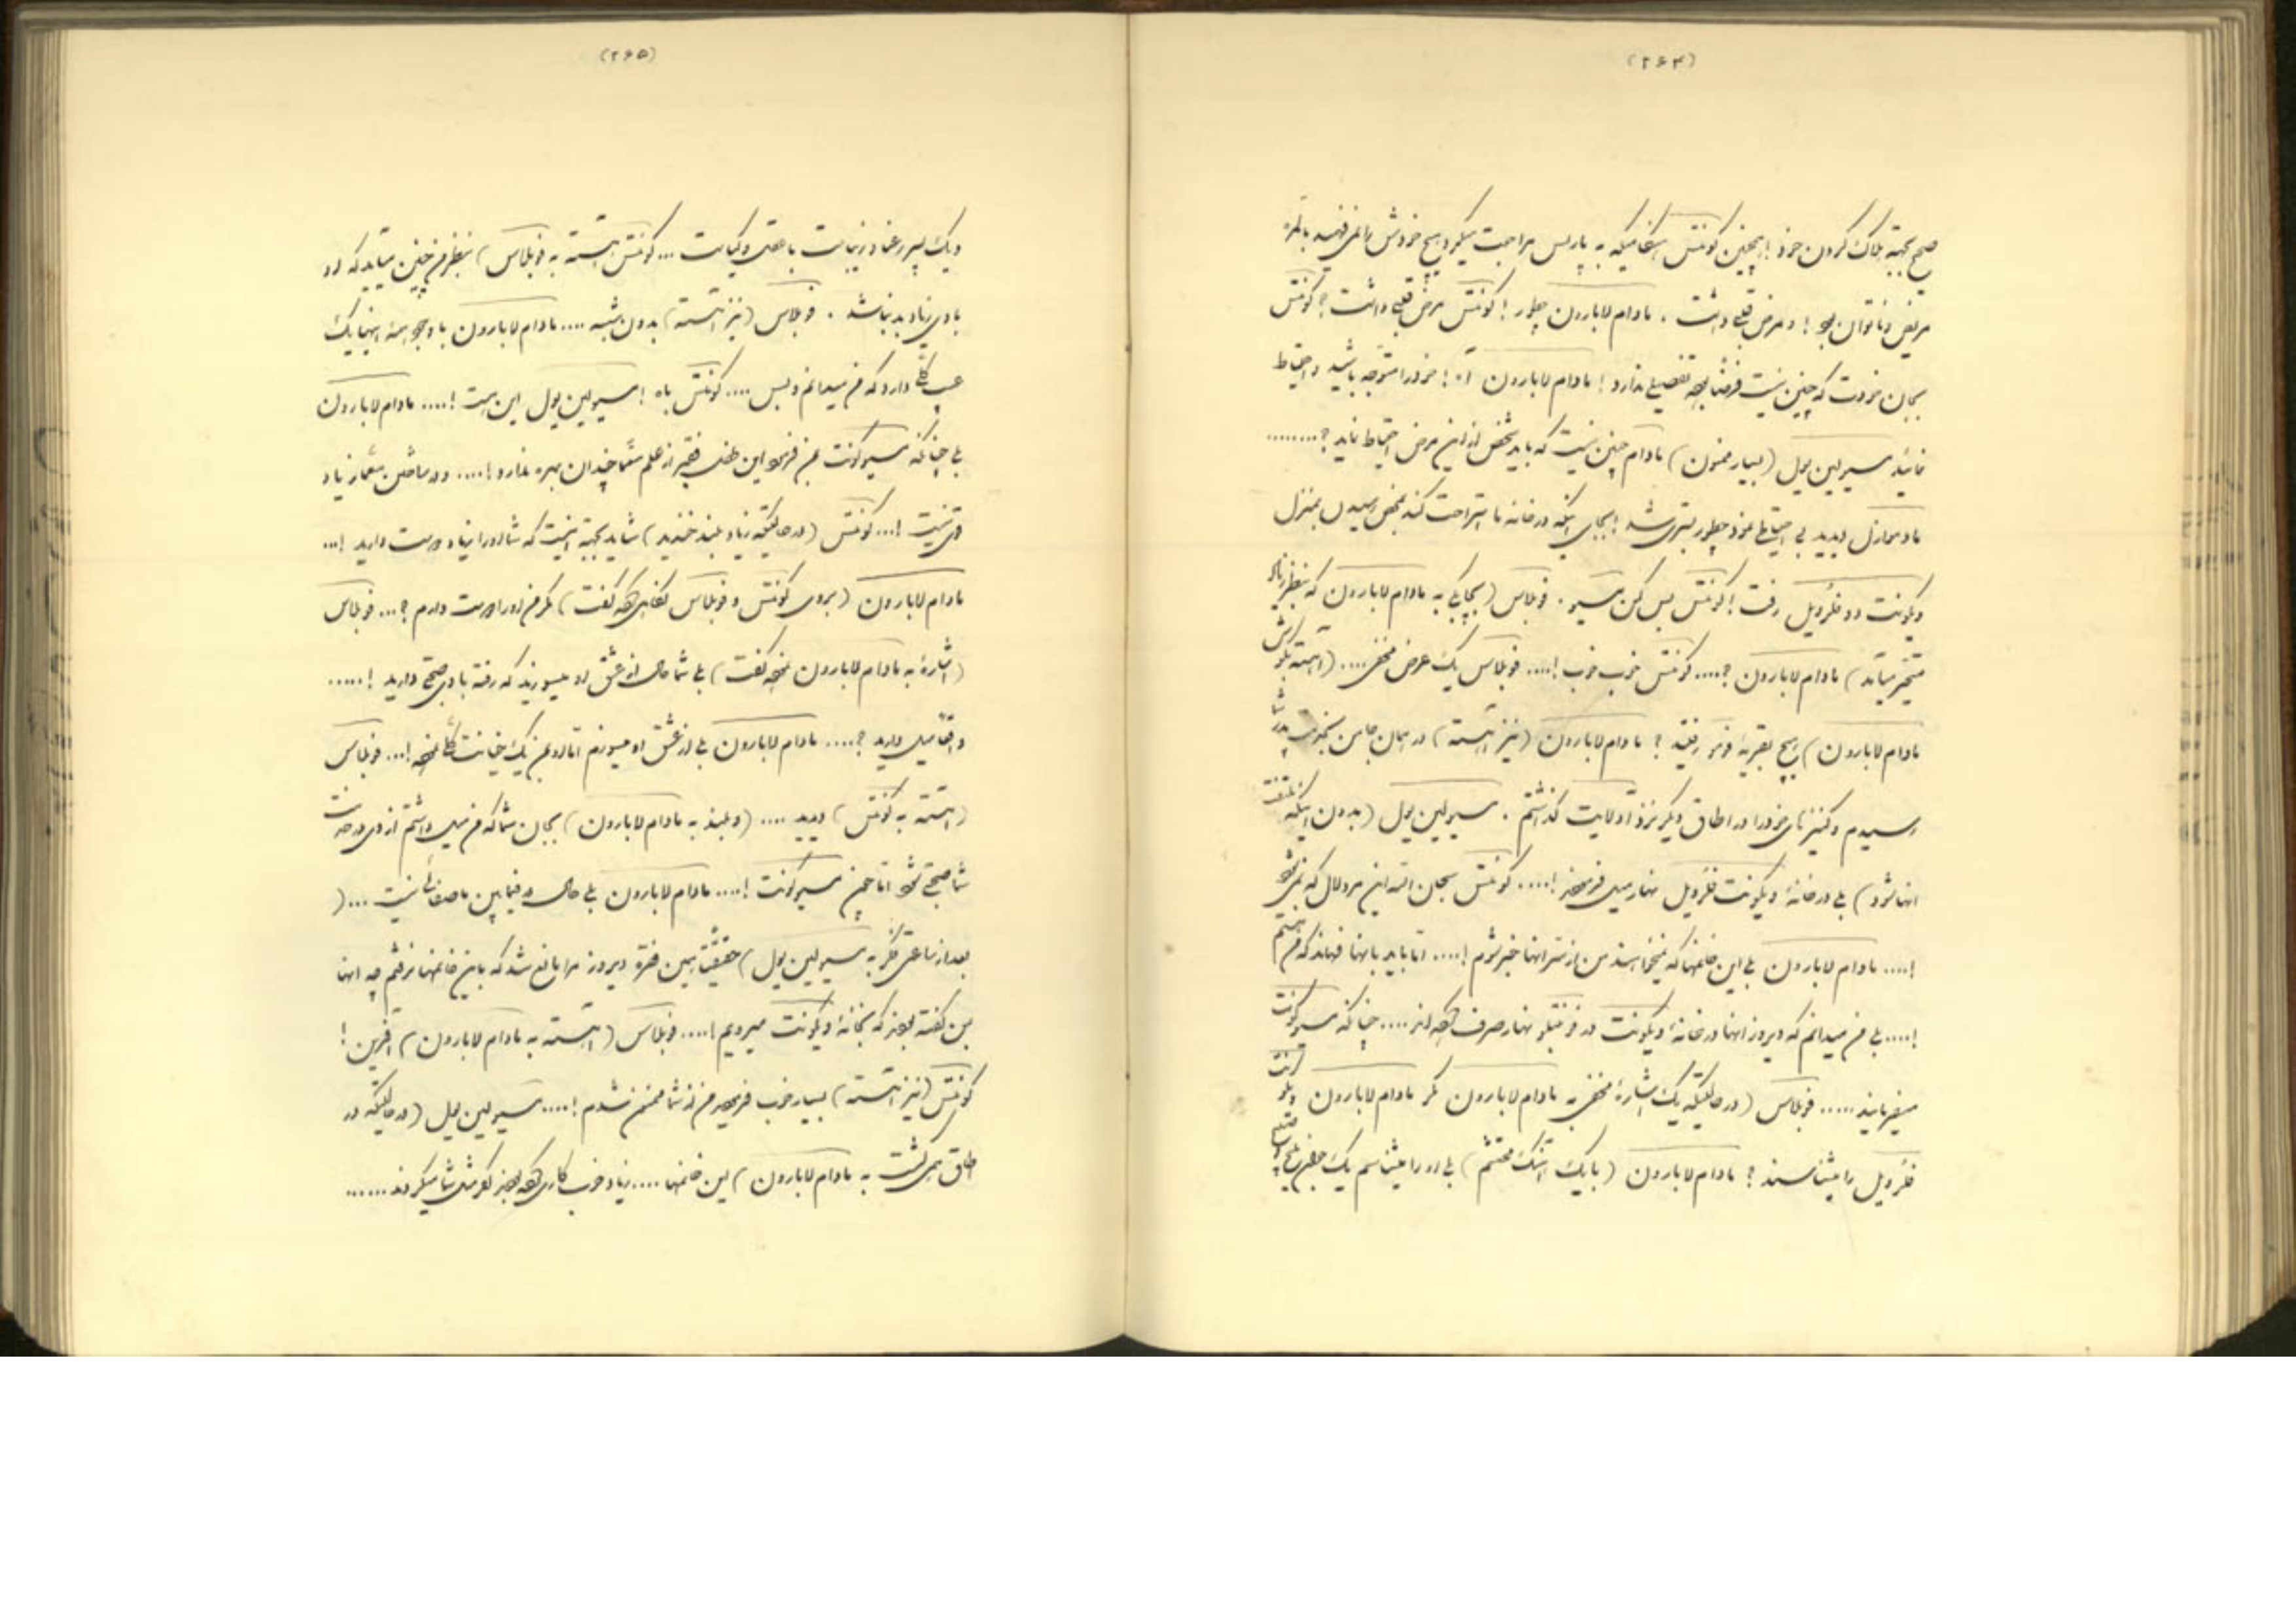 (۲۶۴)
صبح بجهة هلاک کردن خود! همچنین کونتس هنگامیکه به پاریس مراجعت میکرد هیچ خودش را نمی فهمید بالمره
مریض و ناتوان بود! و مرض قلبی داشت . مادام لابارون چطور! کونتس مرض قلبی داشت؟ کونتس
بجان خودت که چنین نیست فرضا بوجه تفصیلی ندارد! مادام لابارون آه! خود را متوجه باشید و احتیاط
نمائید مسیو لین یول (بسیار ممنون) مادام چنین نیست که باید شخص از این مرض احتیاط نماید؟........
مادموازل دیدید بی احتیاطی نمود چطور بستری شد! بجای اینکه در خانه ما استراحت کند بمحض رسیدن بمنزل
ویکونت دو فلرویل رفت! کونتس بس کن مسیو . فوبلاس (بچابکی به مادام لابارون که بنظر
متحیر میآمد) مادام لابارون؟.... کونتس خوب خوب!.... فوبلاس یک عرض مخفی.... (آهسته
مادام لابارون) هیچ بقریهٔ رفتید؟ مادام لابارون (نیز آهسته) در همان جا من بخدمت پدر شما
رسیدم و کنیزهای خود را در اطاق دیگر نزد آدلایت گذاشتم . مسیو لین یول (بدون اینکه ملتفت
آنها شود) بلی در خانهٔ ویکونت فلرویل نهار میل فرمودند!.... کونتس سبحان الله این مرد لال که نمیشود
!.... مادام لابارون بلی این خانمها که نمیخواستند من از سر آنها خبر شوم!.... اما باید بآنها فهماند که من
!.... بلی من میدانم که دیروز آنها در خانهٔ ویکونت در فونتبلو نهار صرف کرده اند.... چنانکه مسیو کونت
میفرمایند..... فوبلاس (در حالتیکه یک اشارهٔ مخفی به مادام لابارون کرد) مادام لابارون ویکونت
فلرویل را میشناسند؟ مادام لابارون (با یک آهنگ محتشم) بلی او را میشناسم یک
(۲۶۵)
و یک پسر رعنا و زیباست با عقل و کیاست... کونتس (آهسته به فوبلاس) بنظر من چنین میآید که او
با وی زیاد بد نباشد . فوبلاس (نیز آهسته) بدون شبهه.... مادام لابارون با وجود همهٔ اینها یک
عیب کلی دارد که من میدانم و بس.... کونتس باه! مسیو لین یول این است!.... مادام لابارون
بلی چنانکه مسیو کونت بمن فرمود این طفل فقیر از علم معما چندان بهره ندارد!.... و در ساختن معما زیاد
قوی نیست!... کونتس (در حالتیکه زیاد بلند خندید) شاید بجهة اینست که شما او را زیاد دوست دارید!...
مادام لابارون (بروی کونتس و فوبلاس نگاهی کرده گفت) مگر من او را دوست دارم؟... فوبلاس
(اشاره به مادام لابارون نموده گفت) بلی شما حال از عشق او میسوزید که رفته با وی صحبتی دارید!.....
واقعا میل دارید؟.... مادام لابارون بلی از عشق او میسوزم اما او بمن یک خیانت کلی نموده!... فوبلاس
(آهسته به کونتس) دیدید.... (و بلند به مادام لابارون) بجان شما که من میل داشتم از وی در خدمت
شما صحبتی شود اما چون مسیو کونت!.... مادام لابارون بلی حال که فیمابین ما صفائی نیست...(
بعد از ساعتی فکر به مسیو لین یول) حقیقتا همین فقره دیروز مرا مانع شد که باین خانمها نرفتم چه آنها
بمن گفته بودند که بخانهٔ ویکونت میرویم!.... فوبلاس (آهسته به مادام لابارون) آفرین!
کونتس (نیز آهسته) بسیار خوب فرمودید من از شما ممنون شدم!.... مسیو لین یول (در حالتیکه در
اطاق همی گشت به مادام لابارون) این خانمها.... زیاد خوب کاری کرده بودند اگر مثل شما میکردند......